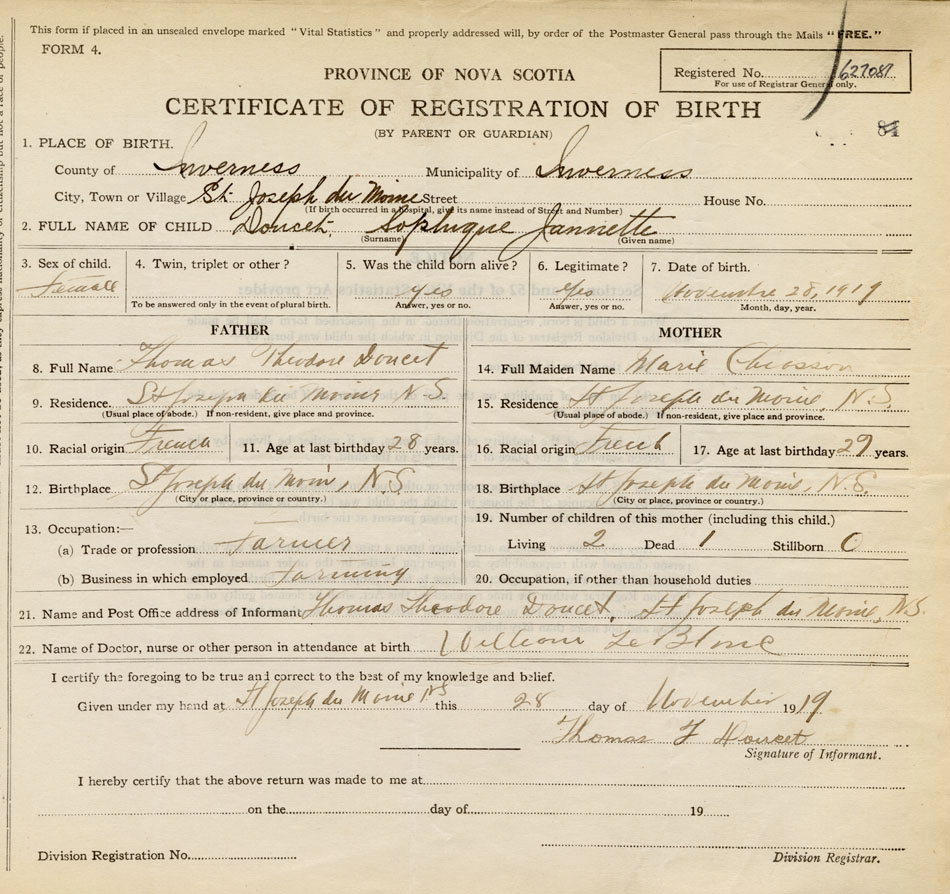 This form if placed in an unsealed envelope marked "Vital Statistics" and properly addressed will, by order of the Postmaster General pass through the Mails "FREE."
FORM 4.
PROVINCE OF NOVA SCOTIA
Registered No. 627087
For use of Registrar General only.
CERTIFICATE OF REGISTRATION OF BIRTH
84
(BY PARENT OR GUARDIAN)
1. PLACE OF BIRTH.
County of Inverness Municipality of Inverness
City, Town or Village St. Joseph du Moine Street House No.
(If birth occurred in a hospital, give its name instead of Street and Number)
2. FULL NAME OF CHILD Doucet, Sophique Jannette
(Surname) (Given name)
3. Sex of child. 4. Twin, triplet or other? 5. Was the child born alive? 6. Legitimate? 7. Date of birth.
Female yes Yes Novembre 28, 1919
To be answered only in the event of plural birth. Answer, yes or no. Answer, yes or no. Month, day, year.
FATHER MOTHER
8. Full Name Thomas Theodore Doucet 14. Full Maiden Name Marie Chiasson
9. Residence. St Joseph du Moine N.S. 15. Residence St Joseph du Moine, N.S.
(Usual place of abode.) If non-resident, give place and province. (Usual place of abode.) If non-resident, give place and province.
10. Racial origin French 11. Age at last birthday 28 years. 16. Racial origin French 17. Age at last birthday 29 years.
12. Birthplace St Joseph du Moin, N.S. 18. Birthplace St Joseph du Moine, N.S.
(City or place, province or country.) (City or place, province or country.)
13. Occupation:— 19. Number of children of this mother (including this child.)
(a) Trade or profession Farmer Living 2 Dead 1 Stillborn 0
(b) Business in which employed Farming 20. Occupation, if other than household duties
21. Name and Post Office address of Informant Thomas Theodore Doucet, St Joseph du Moine, N.S.
22. Name of Doctor, nurse or other person in attendance at birth William LeBlanc
I certify the foregoing to be true and correct to the best of my knowledge and belief.
Given under my hand at St Joseph du Moine NS this 28 day of November 1919
Thomas T Doucet
Signature of Informant.
I hereby certify that the above return was made to me at
on the day of 19
Division Registration No.
Division Registrar.